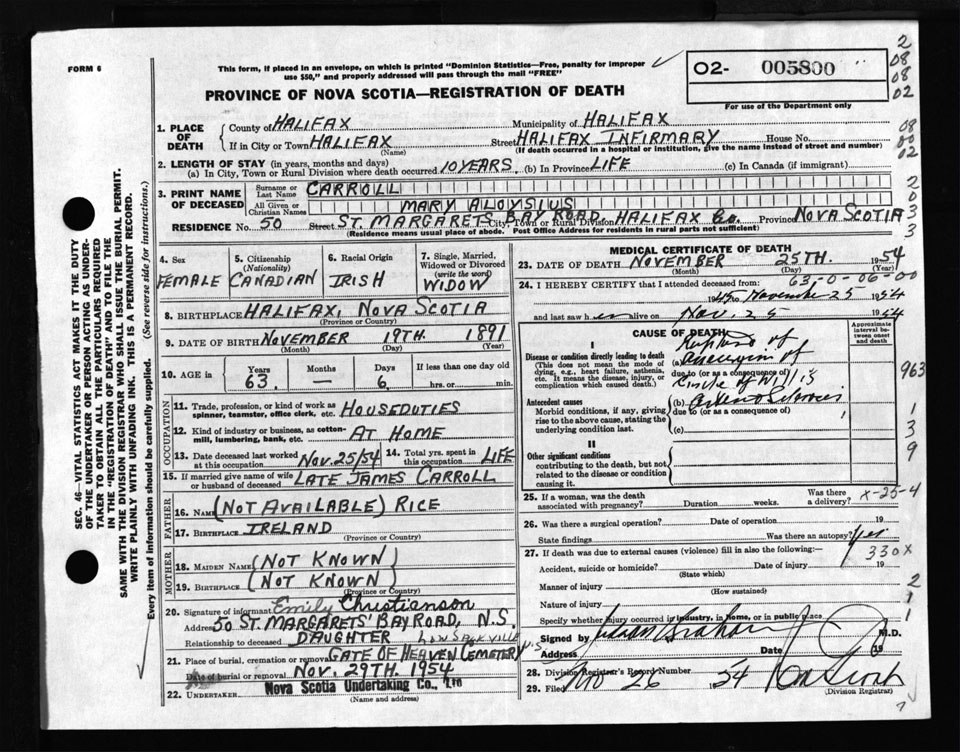 FORM 6
This form, if placed in an envelope, on which is printed "Dominion Statistics—Free, penalty for improper
use $50," and properly addressed will pass through the mail "FREE"
PROVINCE OF NOVA SCOTIA—REGISTRATION OF DEATH
O2- 005800
For use of the Department only
2
08
08
02
08
00
02
2
0
3
3
SEC. 46—VITAL STATISTICS ACT MAKES IT THE DUTY
OF THE UNDERTAKER OR PERSON ACTING AS UNDER-
TAKER TO OBTAIN ALL THE PARTICULARS REQUIRED
IN THE "REGISTRATION OF DEATH" AND TO FILE THE
SAME WITH THE DIVISION REGISTRAR WHO SHALL ISSUE THE BURIAL PERMIT.
WRITE PLAINLY WITH UNFADING INK. THIS IS A PERMANENT RECORD.
Every item of information should be carefully supplied. (See reverse side for instructions.)
1. PLACE OF DEATH
County of HALIFAX Municipality of HALIFAX
If in City or Town HALIFAX Street HALIFAX INFIRMARY House No.
(Name) (If death occurred in a hospital or institution, give the name instead of street and number)
2. LENGTH OF STAY (in years, months and days)
(a) In City, Town or Rural Division where death occurred 10 YEARS. (b) In Province LIFE (c) In Canada (if immigrant)
3. PRINT NAME OF DECEASED
Surname or Last Name CARROLL
All Given or Christian Names MARY ALOYSIUS
RESIDENCE No. 50 Street ST. MARGARETS BAY ROAD City, Town or Rural Division HALIFAX Co. Province NOVA SCOTIA
(Residence means usual place of abode. Post Office Address for residents in rural parts not sufficient)
4. Sex
FEMALE
5. Citizenship (Nationality)
CANADIAN
6. Racial Origin
IRISH
7. Single, Married, Widowed or Divorced (write the word)
WIDOW
8. BIRTHPLACE HALIFAX, NOVA SCOTIA
(Province or Country)
9. DATE OF BIRTH NOVEMBER 19TH. 1891
(Month) (Day) (Year)
10. AGE in Years 63. Months — Days 6 If less than one day old hrs. or min.
OCCUPATION
11. Trade, profession, or kind of work as spinner, teamster, office clerk, etc. HOUSEDUTIES
12. Kind of industry or business, as cotton-mill, lumbering, bank, etc. AT HOME
13. Date deceased last worked at this occupation NOV. 25/54 14. Total yrs. spent in this occupation LIFE
15. If married give name of wife or husband of deceased LATE JAMES CARROLL
FATHER
16. Name (NOT AVAILABLE) RICE
17. BIRTHPLACE IRELAND
(Province or Country)
MOTHER
18. MAIDEN NAME (NOT KNOWN)
19. BIRTHPLACE (NOT KNOWN)
(Province or Country)
20. Signature of informant Emily Christianson
Address 50 ST. MARGARETS' BAY ROAD, N.S.
Relationship to deceased DAUGHTER LOW SACKVILLE N.S
21. Place of burial, cremation or removal GATE OF HEAVEN CEMETERY
Date of burial or removal NOV. 29TH. 1954
22. UNDERTAKER Nova Scotia Undertaking Co., Ltd
(Name and address)
MEDICAL CERTIFICATE OF DEATH
23. DATE OF DEATH NOVEMBER 25TH. 1954
(Month) (Day) (Year)
63-0-06-00
24. I HEREBY CERTIFY that I attended deceased from
19 to November 25 1954
and last saw her alive on Nov. 25 1954
CAUSE OF DEATH
Approximate interval between onset and death
I
Disease or condition directly leading to death
(This does not mean the mode of dying, e.g., heart failure, asthenia, etc. It means the disease, injury, or complication which caused death.)
(a) Rupture of aneurysm of
due to (or as a consequence of)
Circle of Willis
Antecedent causes
Morbid conditions, if any, giving rise to the above cause, stating the underlying condition last.
(b)
due to (or as a consequence of)
(c)
II
Other significant conditions
contributing to the death, but not related to the disease or condition causing it.
963
1
3
9
25. If a woman, was the death associated with pregnancy? Duration weeks. Was there a delivery? X-25-4
26. Was there a surgical operation? Date of operation 19
State findings Was there an autopsy? Yes
27. If death was due to external causes (violence) fill in also the following:— 330X
Accident, suicide or homicide? Date of injury 19
(State which)
Manner of injury 2
(How sustained)
Nature of injury 1
Specify whether injury occurred in industry, in home, or in public place 1
Signed by Graham M.D.
Address Date 19
28. Division Registrar's Record Number
29. Filed Nov 26 1954
(Division Registrar)